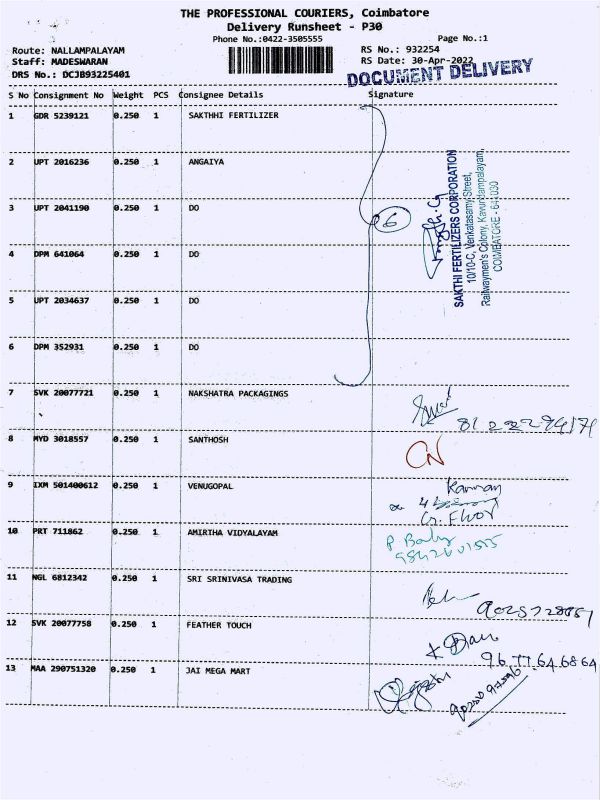 THE PROFESSIONAL COURIERS, Coimbatore
Delivery Runsheet - P30
Phone No.:0422-3505555
Page No.:1
Route: NALLAMPALAYAM
RS No.: 932254
Staff: MADESWARAN
RS Date: 30-Apr-2022
DRS No.: DCJB93225401
DOCUMENT DELIVERY
S No Consignment No Weight PCS Consignee Details Signature
1 GDR 5239121 0.250 1 SAKTHHI FERTILIZER
2 UPT 2016236 0.250 1 ANGAIYA
3 UPT 2041190 0.250 1 DO
6
4 DPM 641064 0.250 1 DO
5 UPT 2034637 0.250 1 DO
6 DPM 352931 0.250 1 DO
SAKTHI FERTILIZERS CORPORATION
10/10-C, Venkatasamy Street,
Railwaymen's Colony, Kavundampalayam,
COIMBATORE - 641030
7 SVK 20077721 0.250 1 NAKSHATRA PACKAGINGS
8 MYD 3018557 0.250 1 SANTHOSH
CN
9 IXM 501400612 0.250 1 VENUGOPAL
Kannan
G. Floor
10 PRT 711862 0.250 1 AMIRTHA VIDYALAYAM
P Baby
11 NGL 6812342 0.250 1 SRI SRINIVASA TRADING
12 SVK 20077758 0.250 1 FEATHER TOUCH
96 77 64 68 64
13 MAA 290751320 0.250 1 JAI MEGA MART